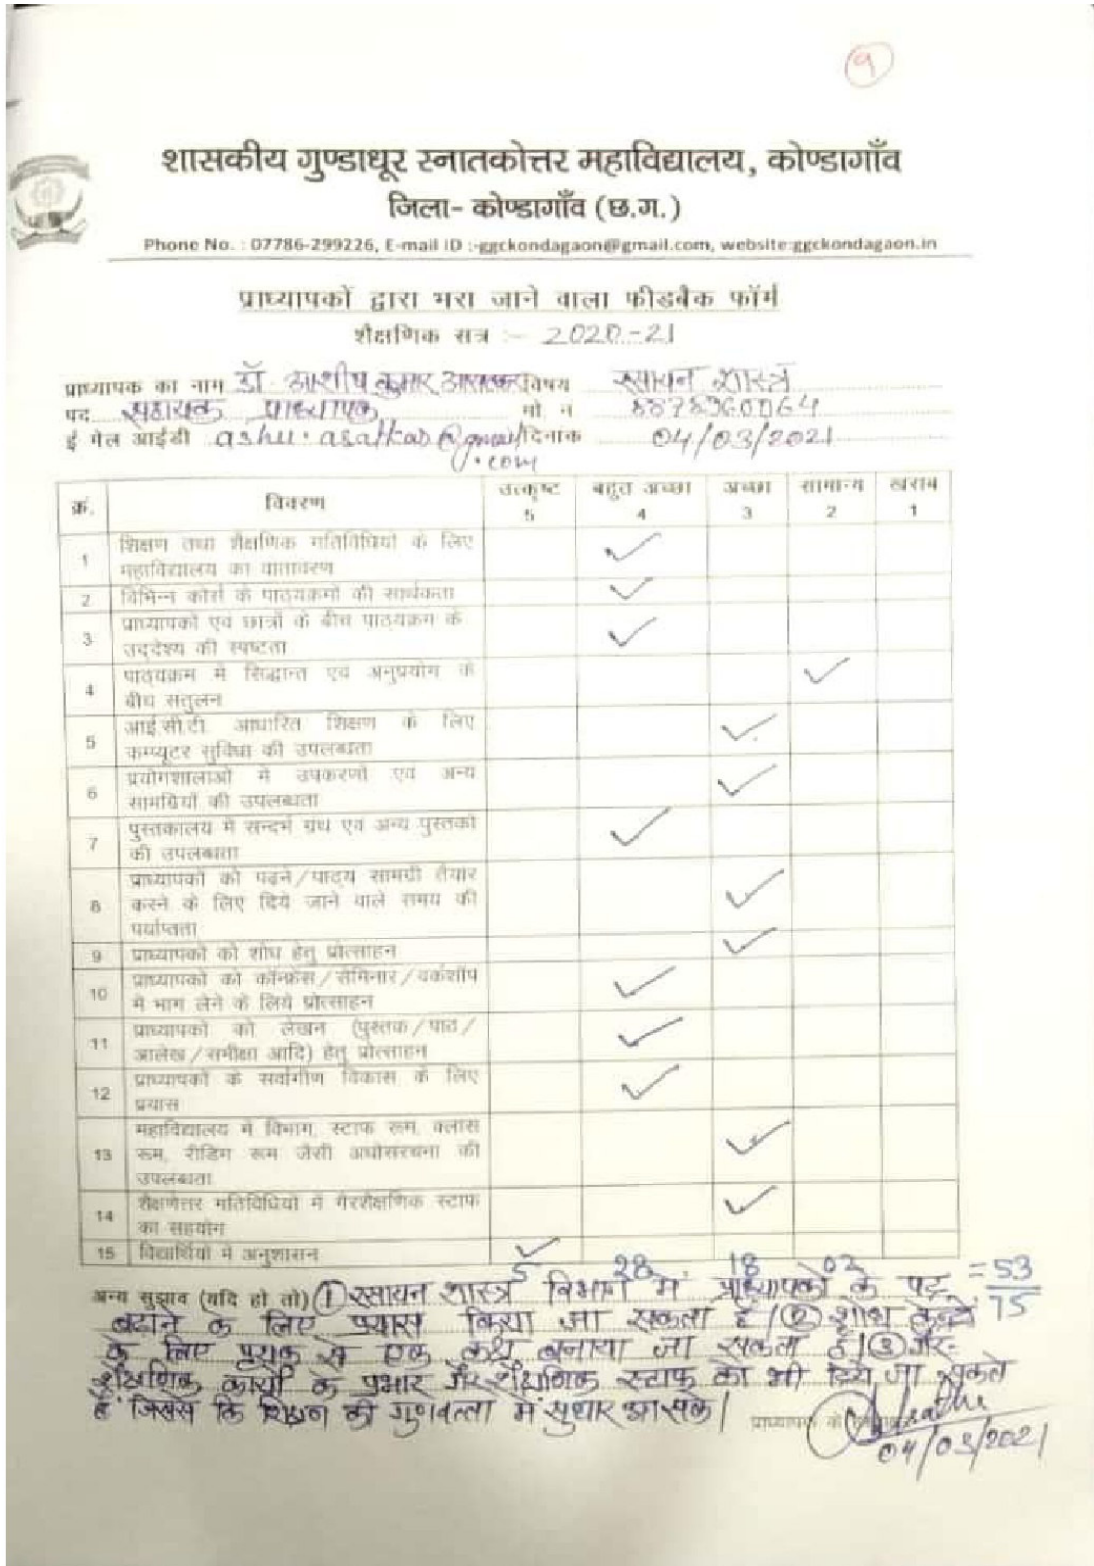 9
शासकीय गुण्डाधूर स्नातकोत्तर महाविद्यालय, कोण्डागाँव
जिला- कोण्डागाँव (छ.ग.)
Phone No. : 07786-299226, E-mail ID :-ggckondagaon@gmail.com, website:ggckondagaon.in
प्राध्यापकों द्वारा भरा जाने वाला फीडबैक फॉर्म
शैक्षणिक सत्र :- 2020-21
प्राध्यापक का नाम डॉ. आशीष कुमार विषय रसायन शास्त्र
पद सहायक प्राध्यापक मो. न.
ई मेल आईडी ashu.asatkar@gmail दिनांक 04/03/2021
.com
क्रं. विवरण उत्कृष्ट 5 बहुत अच्छा 4 अच्छा 3 सामान्य 2 खराब 1
1 शिक्षण तथा शैक्षणिक गतिविधियों के लिए
महाविद्यालय का वातावरण ✓
2 विभिन्न कोर्स के पाठ्यक्रमों की सार्थकता ✓
3 प्राध्यापकों एवं छात्रों के बीच पाठ्यक्रम के
उद्देश्य की स्पष्टता ✓
4 पाठ्यक्रम में सिद्धान्त एवं अनुप्रयोग के
बीच संतुलन ✓
5 आई.सी.टी. आधारित शिक्षण के लिए
कम्प्यूटर सुविधा की उपलब्धता ✓
6 प्रयोगशालाओं में उपकरणों एवं अन्य
सामग्रियों की उपलब्धता ✓
7 पुस्तकालय में सन्दर्भ ग्रंथ एवं अन्य पुस्तकों
की उपलब्धता ✓
8 प्राध्यापकों को पढ़ने/पाठ्य सामग्री तैयार
करने के लिए दिये जाने वाले समय की
पर्याप्तता ✓
9 प्राध्यापकों को शोध हेतु प्रोत्साहन ✓
10 प्राध्यापकों को कॉन्फ्रेंस/सेमिनार/वर्कशॉप
में भाग लेने के लिये प्रोत्साहन ✓
11 प्राध्यापकों को लेखन (पुस्तक/पाठ/
आलेख/समीक्षा आदि) हेतु प्रोत्साहन ✓
12 प्राध्यापकों के सर्वांगीण विकास के लिए
प्रयास ✓
13 महाविद्यालय में विभाग, स्टाफ रूम, क्लास
रूम, रीडिंग रूम जैसी अधोसंरचना की
उपलब्धता ✓
14 शैक्षणेत्तर गतिविधियों में गैरशैक्षणिक स्टाफ
का सहयोग ✓
15 विद्यार्थियों में अनुशासन ✓
5 28 18 02 = 53/75
अन्य सुझाव (यदि हो तो) ① रसायन शास्त्र विभाग में प्राध्यापकों के पद
बढ़ाने के लिए प्रयास किया जा सकता है। ② शोध
के लिए पृथक से एक कक्ष बनाया जा सकता है। ③ गैर-
शैक्षणिक कार्यों के प्रभार गैर शैक्षणिक स्टाफ को भी दिये जा सकते
हैं जिससे कि शिक्षण की गुणवत्ता में सुधार आ सके।
प्राध्यापक के
04/03/2021